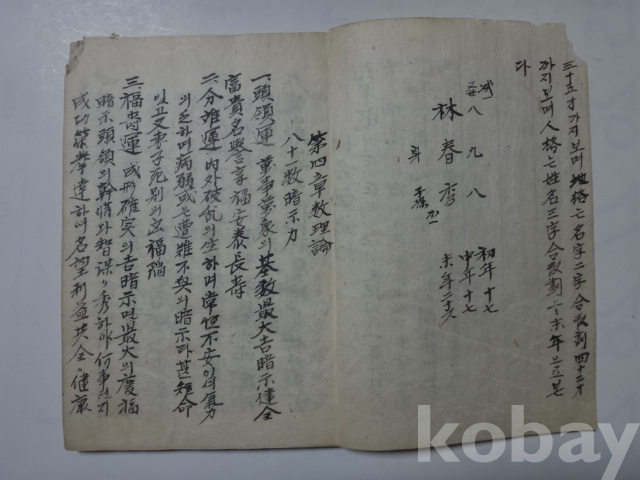 三十五才가지보며 地格는 名字二字合數劃 四十二才
까지보며 人格는 姓名三字合數劃 末年으로본
다
八 九 八
林 春 秀
初年十七
中年十七
末年二十
第四章 數理論
八十一數暗示力
一、頭領運 萬事萬象의 基數最大吉暗示健全
富貴名譽享福安泰長壽
二、分離運 內外破亂의生하며 常恒不安이며氣力
의乏하며病弱或은遭難不具의暗示라甚短命
妻子死別의
三、福壽運 成形確實의吉暗示며最大의慶福
暗示頭領의幹情과智謀 秀하야何事든지
成功榮華達하며名望利益共全 健康
kobay